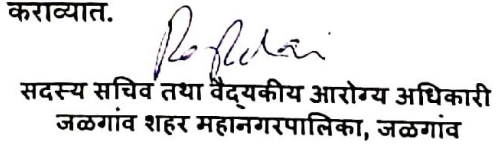 कराव्यात.
सदस्य सचिव तथा वैद्यकीय आरोग्य अधिकारी
जळगांव शहर महानगरपालिका, जळगांव